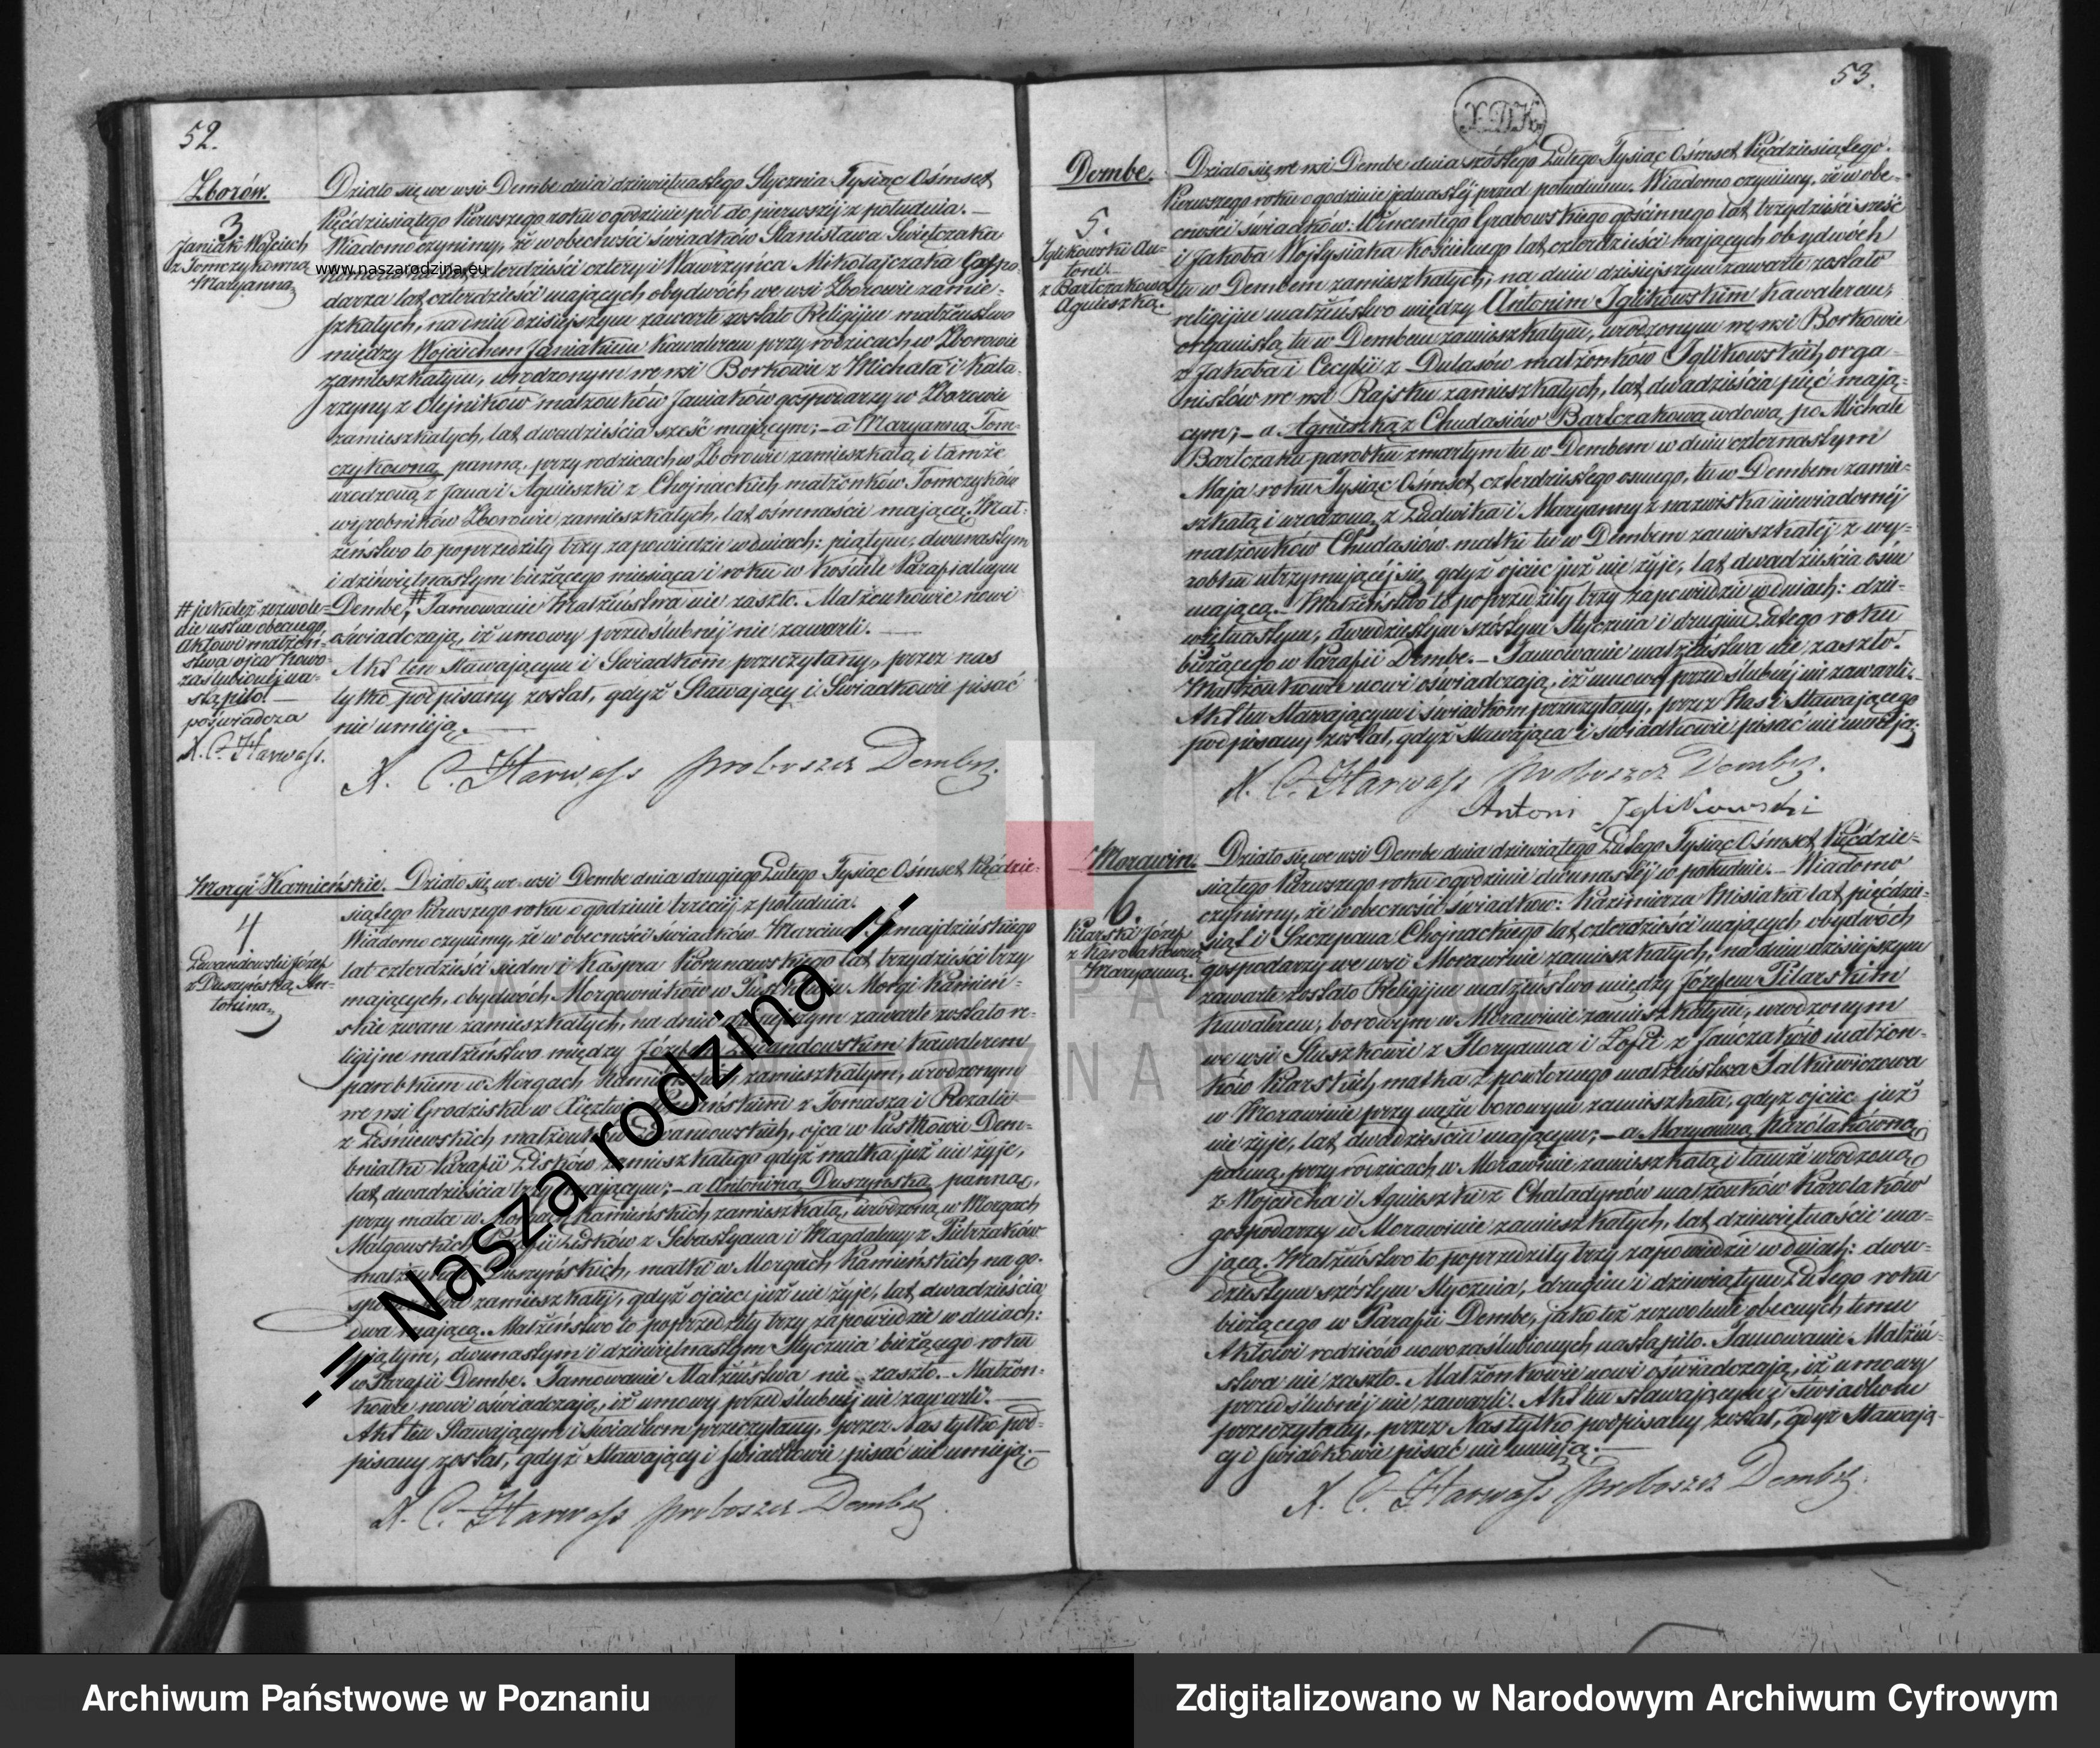 52.
Zborów.
3
Janiak Wojciech
z Tomczykówną
Maryanną
Działo się we wsi Dembe dnia dziewiętnastego Stycznia Tysiąc Ośmset
Pięćdziesiątego Pierwszego roku o godzinie pół do pierwszéj z południa. —
Wiadomo czynimy, że w obecności świadków Stanisława Świętczaka
www.naszarodzina.eu
lat czterdzieści cztery i Wawrzyńca Mikołajczaka Gospo-
darza lat czterdzieści mających obydwóch we wsi Zborowie zamie-
szkałych, na dniu dzisiejszym zawarte zostało Religijne małżeństwo
między Wojciechem Janiakiem Kawalerem przy rodzicach w Zborowie
zamieszkałym, urodzonym we wsi Borkowie z Michała i Kata-
rzyny z Olejników małżonków Janiaków gospodarzy w Zborowie
zamieszkałych, lat dwadzieścia sześć mającym; – a Maryanną Tom-
czykowną panną, przy rodzicach w Zborowie zamieszkałą i tamże
urodzoną z Jana i Agnieszki z Chojnackich małżonków Tomczyków
wyrobników Zborowie zamieszkałych, lat ośmnaście mającą. Mał-
żeństwo to poprzedziły trzy zapowiedzie w dniach: piątym, dwunastym
i dziewiętnastym bieżącego miesiąca i roku w Kościele Parafialnym
Dembe, # Tamowanie Małżeństwa nie zaszło. Małżonkowie nowi
oświadczają, iż umowy przedślubnéj nie zawarli. —
Akt ten Stawającym i Świadkom przeczytany, przez nas
tylko podpisany został, gdyż Stawający i Świadkowie pisać
nie umieją. —
# jakoteż zezwole-
nie ustne obecnego
Aktowi małżeń-
stwa ojca Nowo-
zaślubionéj na-
stąpiło. —
poświadcza
X. C. Harwass.
X. C. Harwass proboszcz Demby.
Morgi Kamieńskie.
4
Lewandowski Józef
z Duszyńską An-
toniną
Działo się we wsi Dembe dnia drugiego Lutego Tysiąc Ośmset Pięćdzie-
siątego Pierwszego roku o godzinie trzeciéj z południa.
Wiadomo czynimy, że w obecności świadków Marcina
lat czterdzieści siedm i Kaspra lat trzydzieści trzy
mających, obydwóch Morgowników w Morgi Kamień-
skie zwane zamieszkałych, na dniu dzisiejszym zawarte zostało re-
ligijne małżeństwo między Józefem Lewandowskim Kawalerem
parobkiem w Morgach Kamieńskich zamieszkałym, urodzonym
we wsi Grodzisku w Xięztwie z Tomasza i Rozalii
z Leśniewskich małżonków Lewandowskich, ojca w
Parafii Lisków zamieszkałego gdyż matka już nie żyje,
lat dwadzieścia trzy mającym; – a Antoniną Duszyńską panną,
przy matce w Morgach Kamieńskich zamieszkałą, urodzoną w Morgach
Parafii Lisków z Sebastyana i Magdaleny z Pietrzaków
małżonków Duszyńskich, matki w Morgach Kamieńskich na go-
spodarstwie zamieszkałéj, gdyż ojciec już nie żyje, lat dwadzieścia
dwa mającą. Małżeństwo to poprzedziły trzy zapowiedzie w dniach:
piątym, dwunastym i dziewiętnastym Stycznia bieżącego roku
w Parafii Dembe. Tamowanie Małżeństwa nie zaszło. – Małżon-
kowie nowi oświadczają, iż umowy przedślubnéj nie zawarli. —
Akt ten Stawającym i świadkom przeczytany, przez Nas tylko pod-
pisany został, gdyż Stawający i świadkowie pisać nie umieją. —
X. C. Harwass proboszcz Demby.
53.
X.D.K.
Dembe.
5.
Iglikowski An-
toni
z Bartczakową
Agnieszką.
Działo się we wsi Dembe dnia szóstego Lutego Tysiąc Ośmset Pięćdziesiątego
Pierwszego roku o godzinie jedenastéj przed południem. Wiadomo czynimy, że w obe-
cności świadków: Wincentego Grabowskiego gościnnego lat trzydzieści sześć
i Jakóba Wojtysiaka Kościelnego lat czterdzieści mających obydwóch
tu w Dembem zamieszkałych, na dniu dzisiejszym zawarte zostało
religijne małżeństwo między Antonim Iglikowskim Kawalerem,
organistą tu w Dembem zamieszkałym, urodzonym we wsi Borkowie
z Jakóba i Cecylii z Dulasów małżonków Iglikowskich orga-
nistów we wsi Rajsku zamieszkałych, lat dwadzieścia pięć mają-
cym; – a Agnieszką z Chudasiów Bartczakową wdową po Michale
Bartczaku parobku zmarłym tu w Dembem w dniu czternastym
Maja roku Tysiąc Ośmset czterdziestego osmego, tu w Dembem zamie-
szkałą i urodzoną z Ludwika i Maryanny z nazwiska niewiadoméj
małżonków Chudasiów matki tu w Dembem zamieszkałéj z wy-
robku utrzymującéj się, gdyż ojciec już nie żyje, lat dwadzieścia ośm
mającą. Małżeństwo to poprzedziły trzy zapowiedzie w dniach: dzie-
więtnastym, dwudziestym szóstym Stycznia i drugim Lutego roku
bieżącego w Parafii Dembe. – Tamowanie małżeństwa nie zaszło.
Małżonkowie nowi oświadczają, iż umowę przedślubnéj nie zawarli.
Akt ten Stawającym i świadkom przeczytany, przez Nas i Stawającego
podpisany został, gdyż Stawająca i świadkowie pisać nie umieją.
X. C. Harwass proboszcz Demby.
Antoni Iglikowski
Morawin.
6.
Pilarski Józef
z Karolakówną
Maryanną.
Działo się we wsi Dembe dnia dziewiątego Lutego Tysiąc Ośmset Pięćdzie-
siątego Pierwszego roku o godzinie dwunastéj w południe. – Wiadomo
czynimy, że w obecności świadków: Kazimierza Misiaka lat pięćdzie-
siąt i Szczepana Chojnackiego lat czterdzieści mających obydwóch
gospodarzy we wsi Morawinie zamieszkałych, na dniu dzisiejszym
zawarte zostało Religijne małżeństwo między Józefem Pilarskim
Kawalerem, borowym w Morawinie zamieszkałym, urodzonym
we wsi Tłuszkowie z Floryana i Zofii z Jańczaków małżon-
ków Pilarskich, matka z powtórnego małżeństwa Falkiewiczowa
w Morawinie przy mężu borowym zamieszkała, gdyż ojciec już
nie żyje, lat dwadzieścia mającym; – a Maryanną Karolakówną
panną, przy rodzicach w Morawinie zamieszkałą i tamże urodzoną
z Wojciecha i Agnieszki z Chaładynów małżonków Karolaków
gospodarzy w Morawinie zamieszkałych, lat dziewiętnaście ma-
jącą. Małżeństwo to poprzedziły trzy zapowiedzie w dniach: dwu-
dziestym szóstym Stycznia, drugim i dziewiątym Lutego roku
bieżącego w Parafii Dembe, jakoteż zezwolenie obecnych temu
Aktowi rodziców nowozaślubionych nastąpiło. Tamowanie Małżeń-
stwa nie zaszło. Małżonkowie nowi oświadczają, iż umowy
przedślubnéj nie zawarli. Akt ten stawającym i świadkom
przeczytany, przez Nas tylko podpisany został, gdyż Stawają-
cy i świadkowie pisać nie umieją. —
X. C. Harwass proboszcz Demby.
-= Nasza rodzina =-
ARCHIWUM PAŃSTWOWE
W POZNANIU
Archiwum Państwowe w Poznaniu
Zdigitalizowano w Narodowym Archiwum Cyfrowym